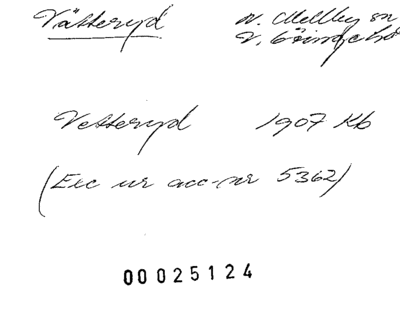 Vätteryd
N. Mellby sn
V. Göinge hd
Vetteryd 1907 Kb
(Exc ur acc-nr 5362)
00025124